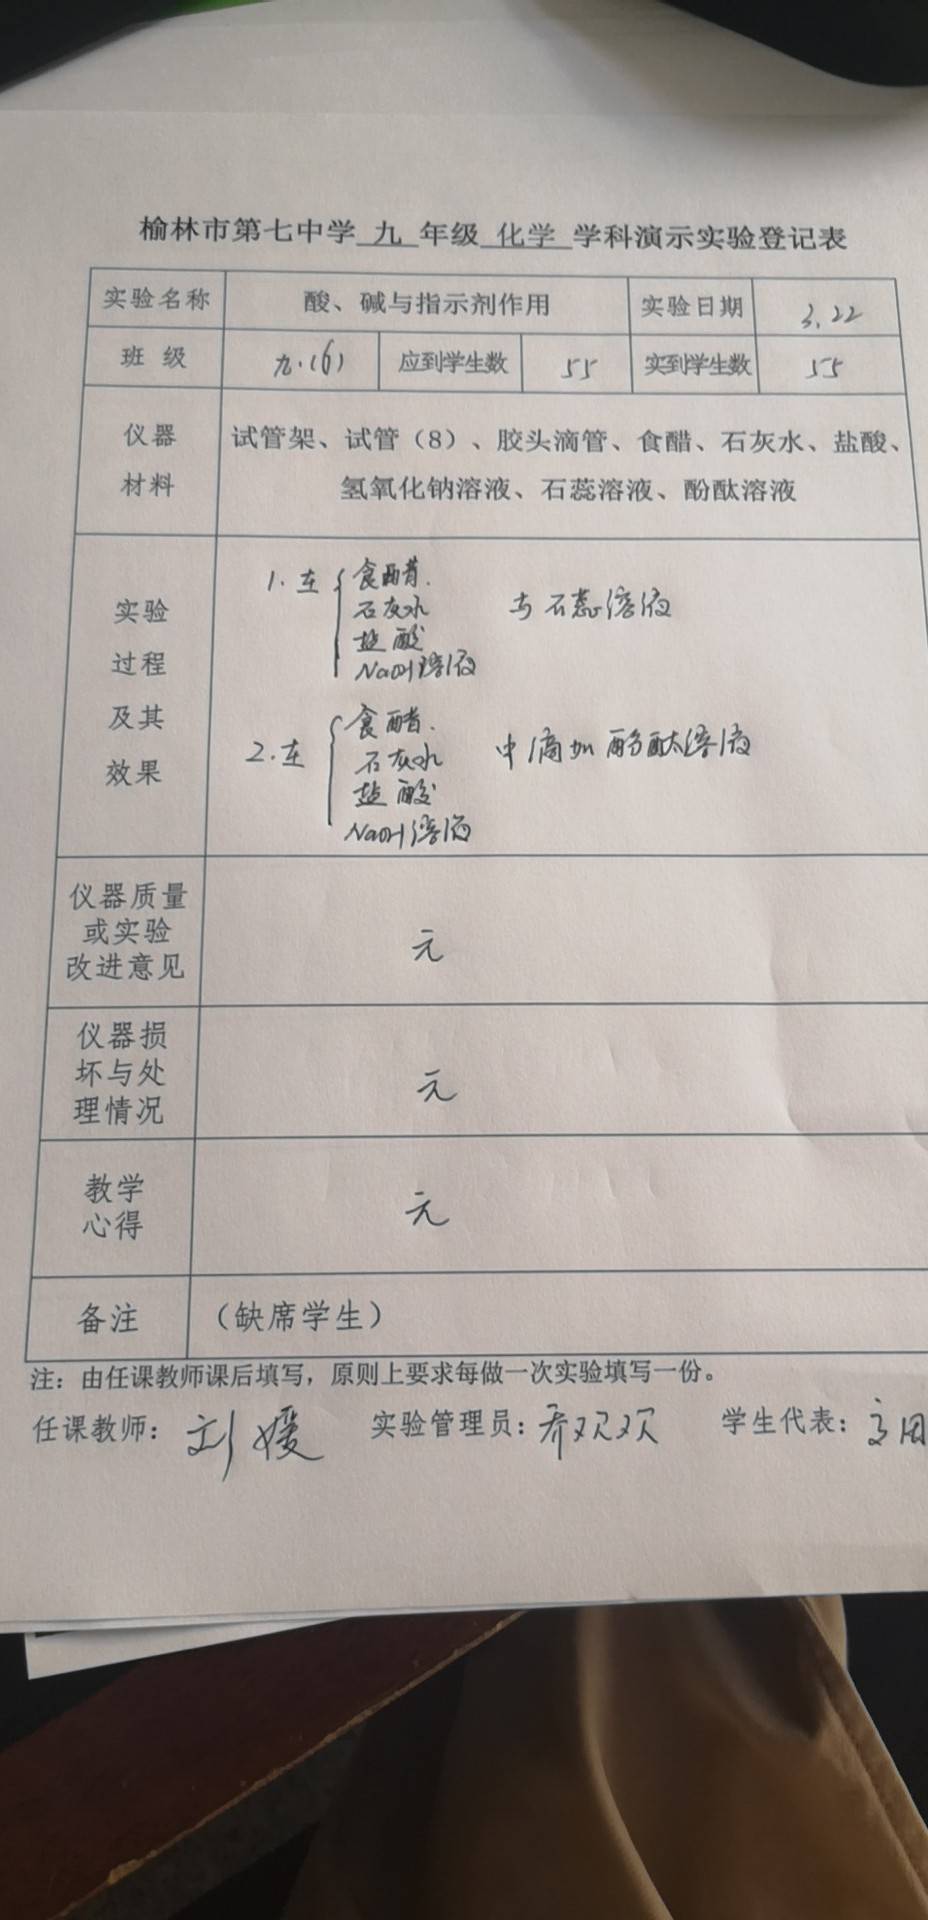 榆林市第七中学 九 年级 化学 学科演示实验登记表
实验名称 酸、碱与指示剂作用 实验日期 3.22
班 级 九.(6) 应到学生数 55 实到学生数 55
仪器 试管架、试管（8）、胶头滴管、食醋、石灰水、盐酸、
材料 氢氧化钠溶液、石蕊溶液、酚酞溶液
实验
过程
及其
效果
1.在 食醋. 与石蕊溶液
石灰水
盐酸
NaOH溶液
2.在 食醋. 中滴加酚酞溶液
石灰水
盐酸
NaOH溶液
仪器质量
或实验
改进意见
无
仪器损
坏与处
理情况
无
教学
心得
无
备注 （缺席学生）
注：由任课教师课后填写，原则上要求每做一次实验填写一份。
任课教师：刘媛 实验管理员：乔欢欢 学生代表：